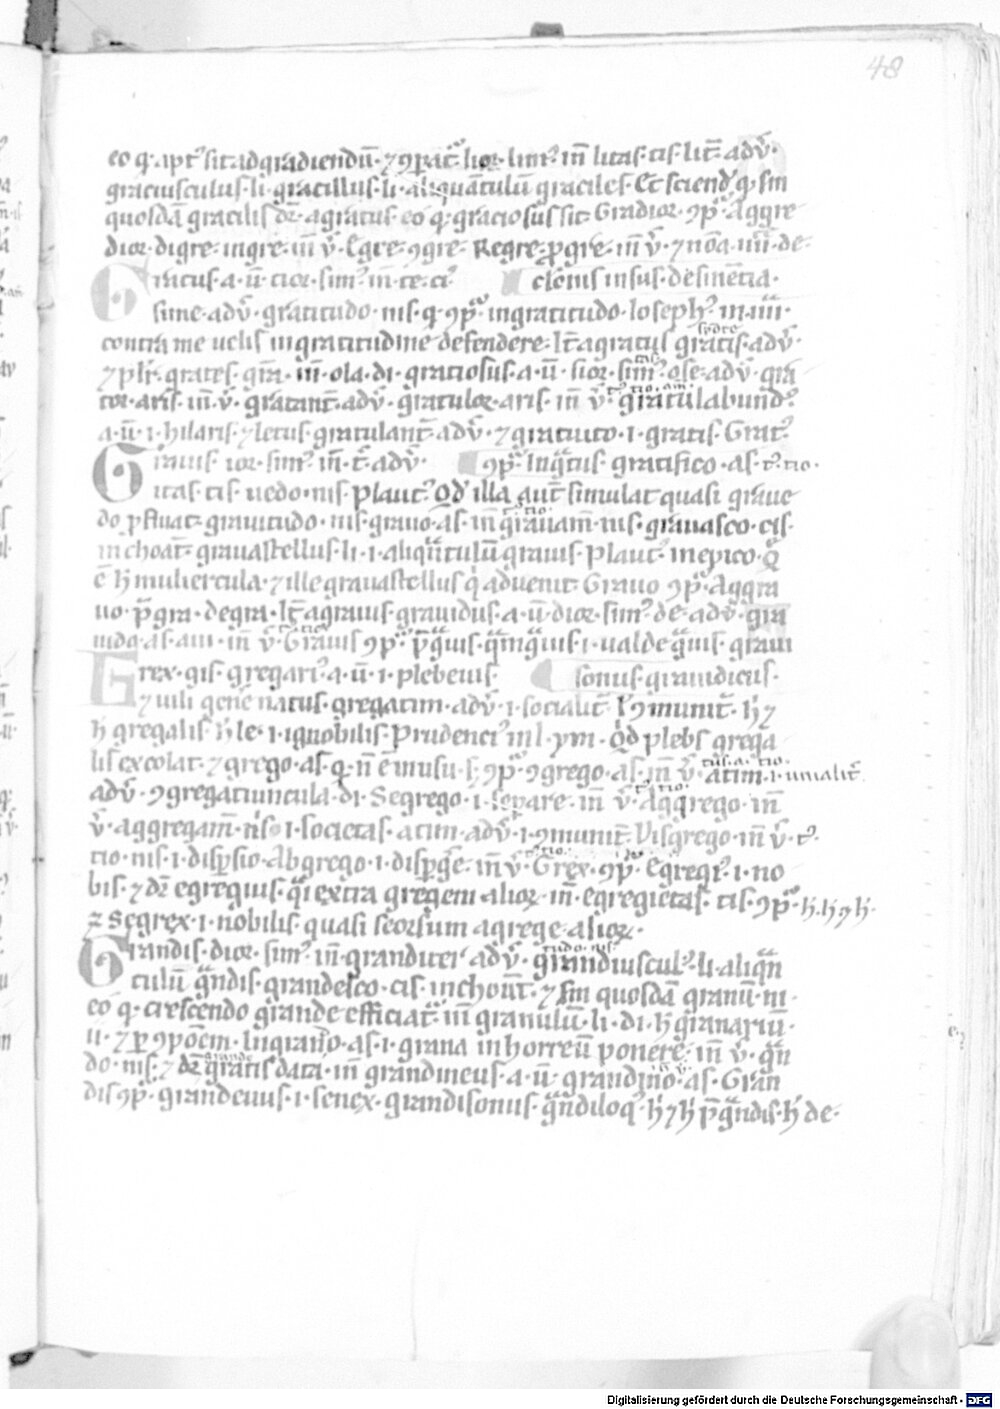 48
eo q· apt᷒ sit ad gradiendū· ⁊ ꝯparat᷒ lior· lim᷒· in̄ litas· tis· lit̄· adv̄·
graciusculus· li· gracillus· li· aliquātulū graciles· Et sciend̄ q· sm
quosdā gracilis dr̄· a gratus· eo q· graciosus sit· Gradior· ꝯp̄· Aggre
dior· digre· ingre· in̄ v̄· Egre· ꝯgre· Regre· ꝓgre· in̄ v̄· ⁊ nōa· iiii· de·
Gratus· a· ū· tior· sim᷒· in̄· te· ci᷒ clenis insus· desinētia·
sime· adv̄· gratitudo· nis· q· ꝯp̄· ingratitudo· Ioseph᷒· in· iiii·
contra me uelis ingratitudinē defendere· It̄ a gratus gratis· adv̄·
⁊ plr̄· grates· gr̄a· in̄· ola· di· gratiosus· a· ū· sior· sim᷒· ose· adv̄· gra
tor· aris· in̄· v̄· gratant̄· adv̄· gratulor· aris· in̄ v̄· gratulabund᷒
a· ū· i· hilaris· ⁊ letus· gratulant̄· adv̄· ⁊ gratuito· i· gratis· Grat᷒
Grauis· ior· sim᷒· in̄· t̄· adv̄· ꝯp̄· Ingͣtus· gratifico· as· t᷒· tio·
itas· tis· uedo· nis· Plaut᷒· Qd̄ illa aut̄ simulat quasi graue
do ꝓfluat· grauitudo· nis· grauo· as· in̄ grauam̄· nis· grauasco· cis·
inchoat̄· grauastellus· li· i· aliqͣntulū grauis· Plaut᷒· in epico· Q
ē h̄ muliercula· ⁊ ille grauastellus q̇ aduenit· Grauo ꝯp̄· Aggra
uo· p̄gra· degra· It̄ a grauis· grauidus· a· ū· dior· sim᷒· de· adv̄· gra
uido· as· aui· in̄ v̄· Grauis ꝯp̄· p̄gͣuis· qͣmgͣuis· i· ualde gͣuis· graui
Grex· gis· gregari᷒· a· ū· i· plebeius· sonus· grauidicus·
⁊ uili genē natus· gregatim· adv̄· i· socialit̄· ł ꝯmunit̄· h̄ ⁊
h̄ gregalis· h̄ le· i· ignobilis· Prudenci᷒ in l· ym· Qd̄ plebs grega
lis excolat· ⁊ grego· as· q· n̄ ē in usu· s; ꝯp̄· ꝯgrego· as· in̄ v̄· atim· i· unialit̄·
adv̄· ꝯgregatiuncula· di· Segrego· i· separe· in̄ v̄· Aggrego· in̄
v̄· aggregam̄· nis· i· societas· atim· adv̄· i· ꝯmunit̄· Disgrego· in̄ v̄· t᷒·
tio· nis· i· dispersio· Abgrego· i· dispgē· in̄ v̄· Grex· ꝯp̄· Egregi᷒· i· no
bis· ⁊ dr̄ egregius· qͣi extra gregem alior· in̄· egregietas· tis· ꝯp̄· h̄· h̄ ⁊ h̄·
⁊ Segrex· i· nobilis· quasi seorsum a grege· alior·
Grandis· dior· sim᷒· in̄· granditer· adv̄· grandiuscul᷒· li· aliqͣn
tulū gͣndis· grandesco· cis· inchoat̄· ⁊ sm quosdā granū· ni·
eo q· crescendo grande efficiat᷒· in̄ granulū· li· di· h̄ granariū·
ii· ⁊ p ꝯpōem· Ingrano· as· i· grana in horreū ponere· in̄ v̄· gͣn
do· nis· ⁊ dr̄ gratis data· in̄ grandineus· a· ū· grandino· as· Gran
dis ꝯp̄· grandeuus· i· senex· grandisonus· gͣndiloq᷒· h̄ ⁊ h̄ p̄gͣndis· h̄ de·
Digitalisierung gefördert durch die Deutsche Forschungsgemeinschaft - DFG